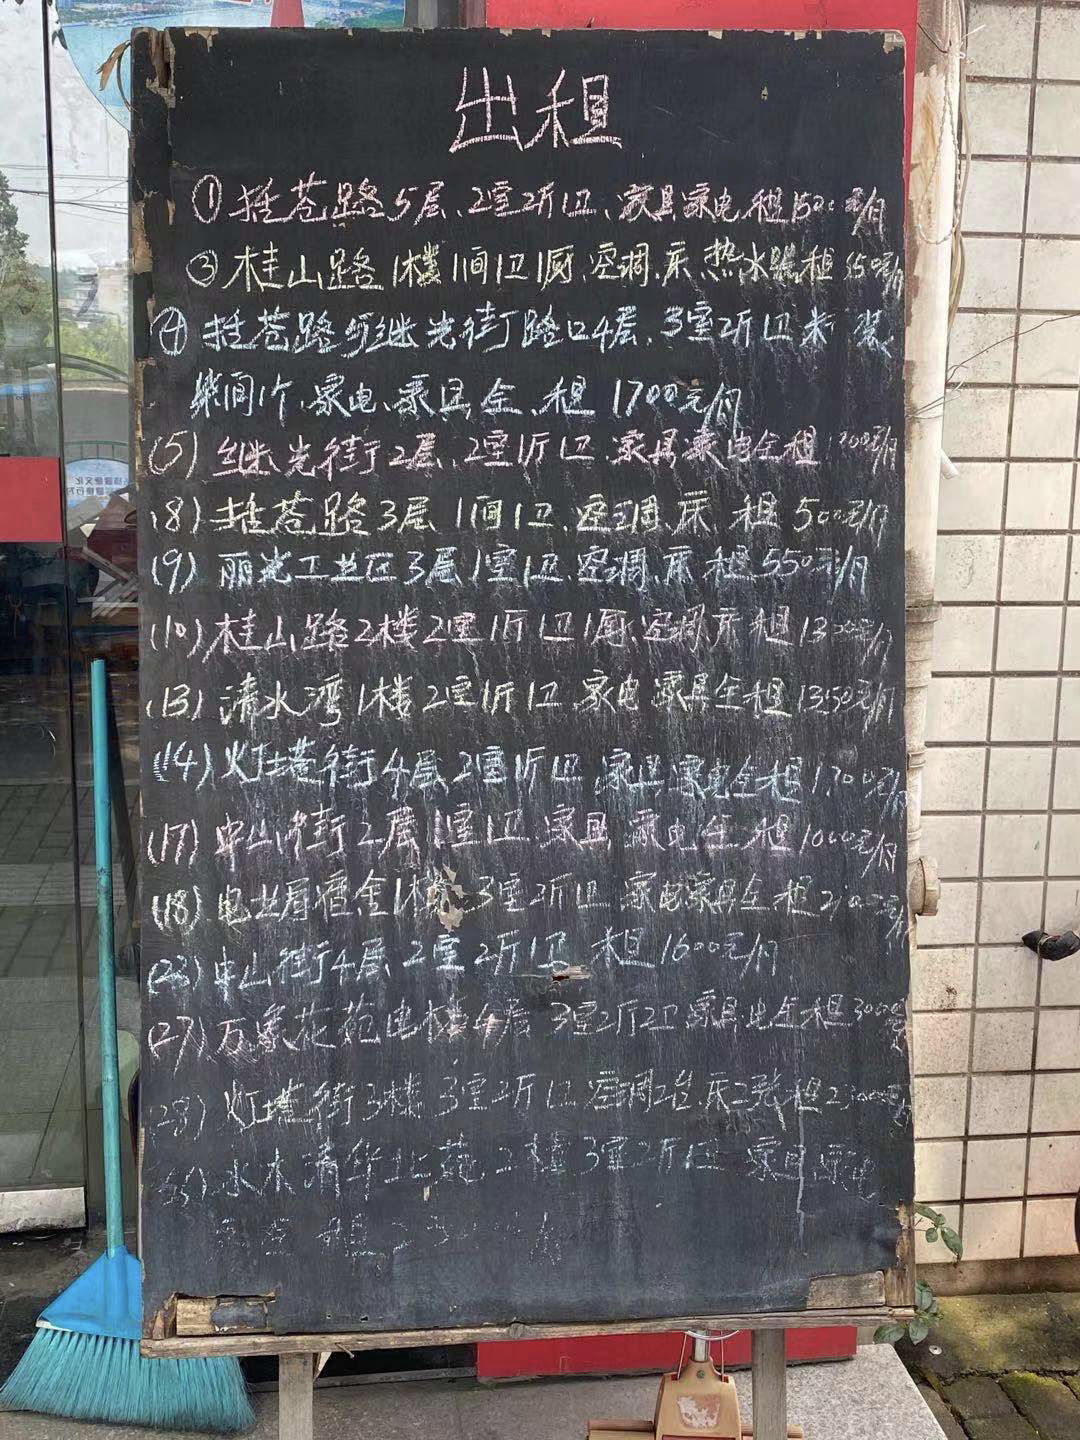 出租
① 括苍路5层、2室2厅1卫、家具家电 租1500元/月
③ 桂山路1楼1间1卫1厨、空调、床、热水器租550元/月
④ 括苍路 继光街路口4层、3室2厅1卫 装
1个、家电、家具全、租1700元/月
(5) 继光街2层、2室1厅1卫、家具家电全租 元/月
(8) 括苍路3层1间1卫、空调、床 租500元/月
(9) 丽光工业区3层1室1卫、空调、床 租550元/月
(10) 桂山路2楼2室1厅1卫1厨、空调床 租1300元/月
(13) 清水湾1楼2室1厅1卫 家电 家具全租1350元/月
(14) 灯塔街4层2室1厅1卫 家具家电全租1700元/月
(17) 中山街2层1室1卫、家具 家电全租1000元/月
(18) 电业局宿舍1楼3室2厅1卫 家电家具全租2100元/月
(23) 中山街4层2室2厅1卫 租1600元/月
(27) 万象花苑电梯4层 3室2厅2卫 家具电全租3000元
(28) 灯塔街3楼3室2厅1卫 空调2台 床2张租2300元/月
水木清华北苑 2楼3室2厅1卫 家电
租